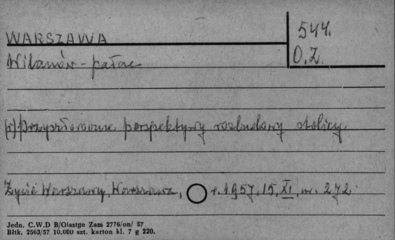 WARSZAWA
544.
Wilanów - pałac
O.Z.
(r) Przyszłościowe perspektywy rozbudowy stolicy.
Życie Warszawy, Warszawa, r. 1957, 15, XI, nr. 272
Jedn. C.W.D B/Olsztyn Zam 2776/on/ 57
Bltk. 2563/57 10.000 szt. karton kl. 7 g 220.